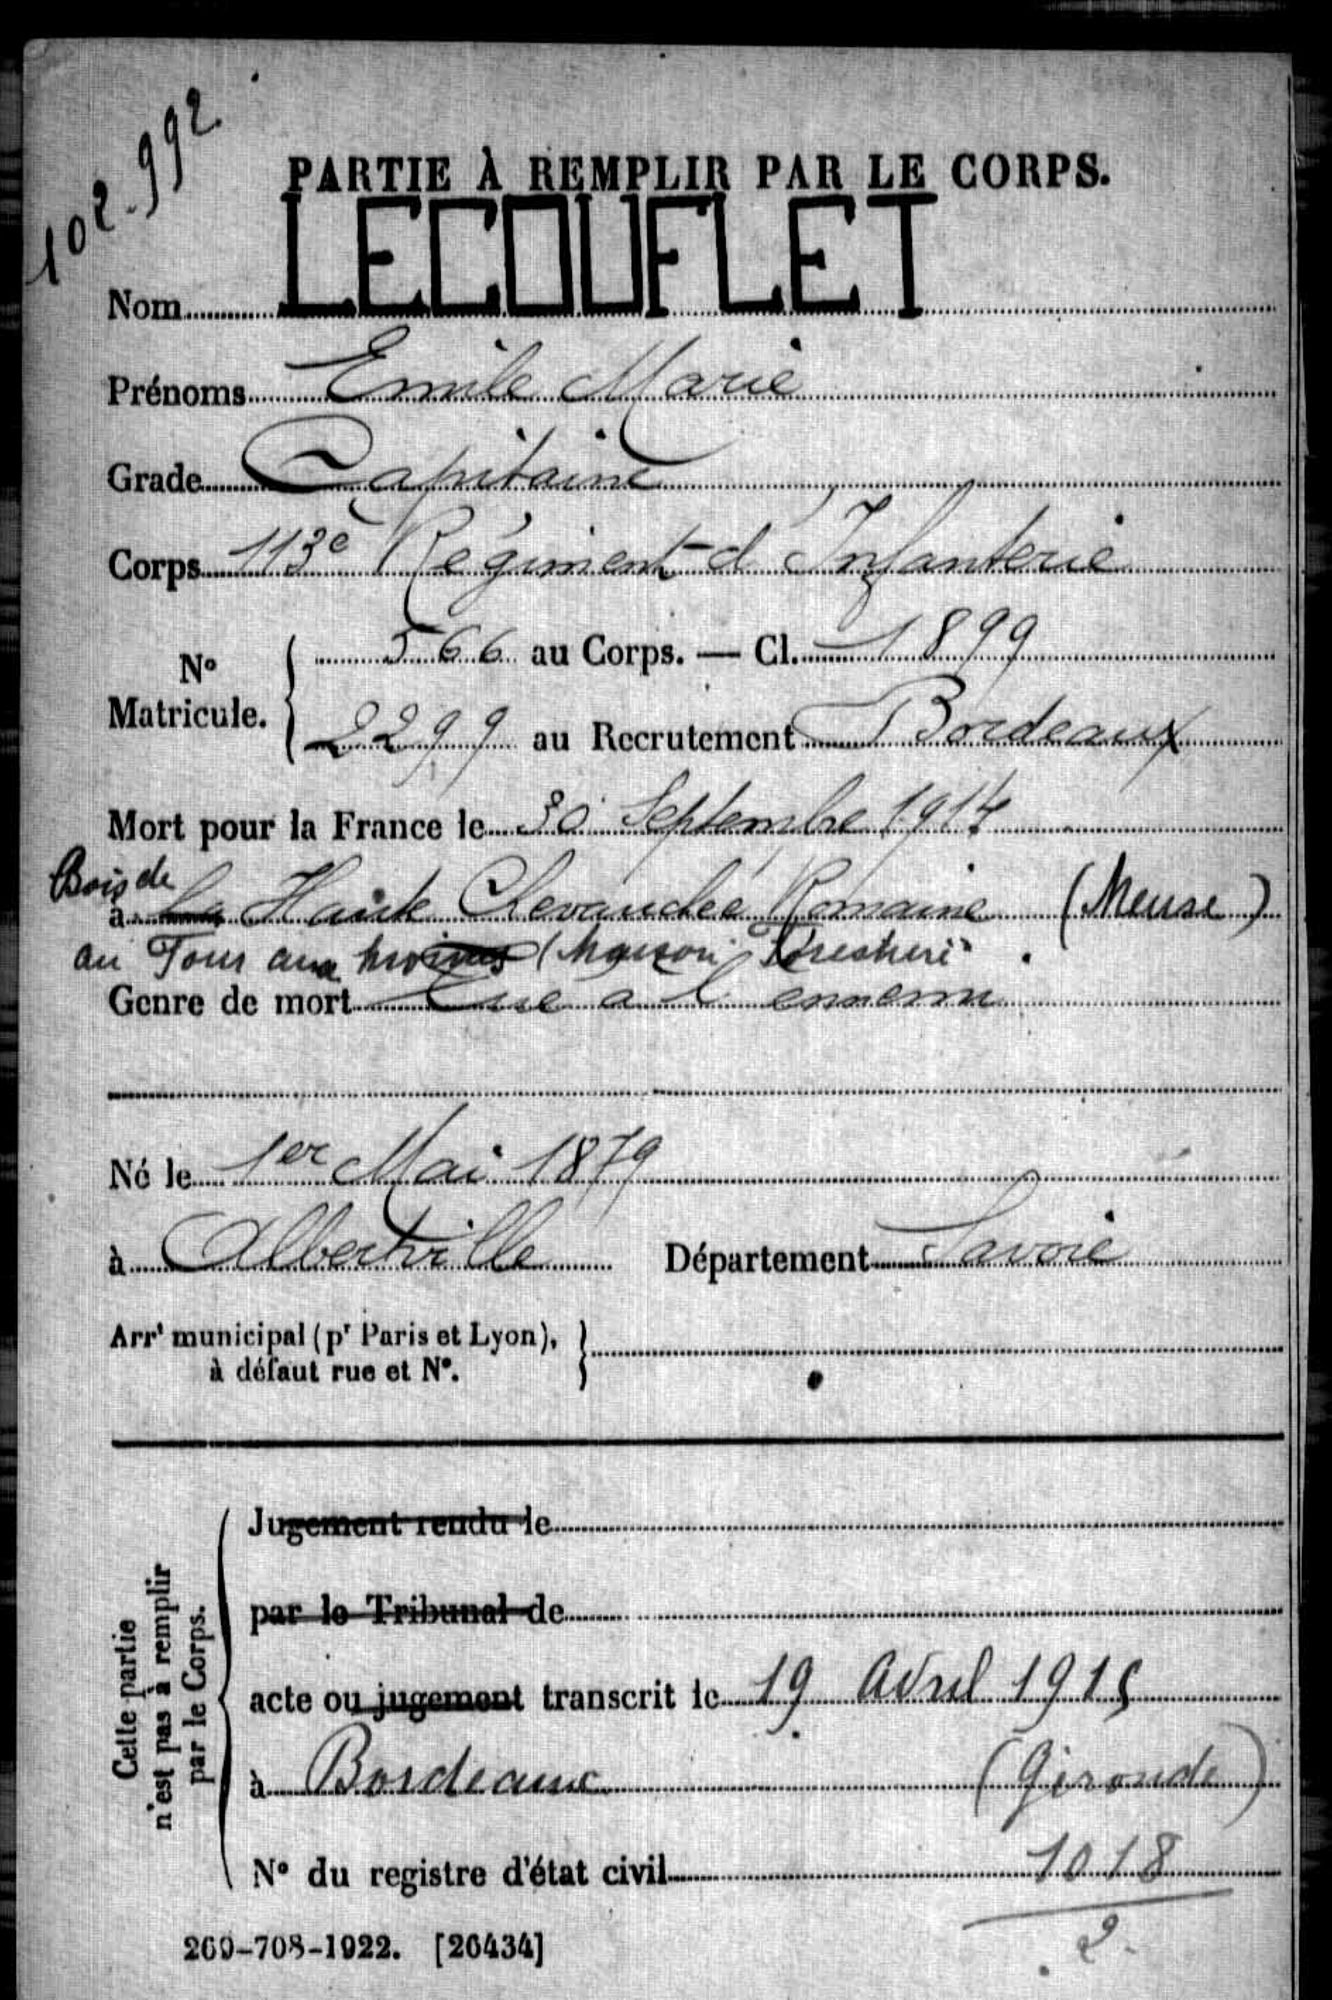 102.992
PARTIE À REMPLIR PAR LE CORPS.
Nom LECOUFLET
Prénoms Emile Marie
Grade Capitaine
Corps 113e Régiment d'Infanterie
No Matricule. 566 au Corps. — Cl. 1899
2299 au Recrutement Bordeaux
Mort pour la France le 30 Septembre 1914
Bois de
à la Haute Chevauchée Romaine (Meuse)
au Four aux (Maison Forestière
Genre de mort Tué à l'ennemi
Né le 1er Mai 1879
à Albertville Département Savoie
Arrt municipal (pr Paris et Lyon),
à défaut rue et No.
Cette partie
n'est pas à remplir
par le Corps.
Jugement rendu le
par le Tribunal de
acte ou jugement transcrit le 19 Avril 1915
à Bordeaux (Gironde)
No du registre d'état civil 1018
2
269-708-1922. [26434]